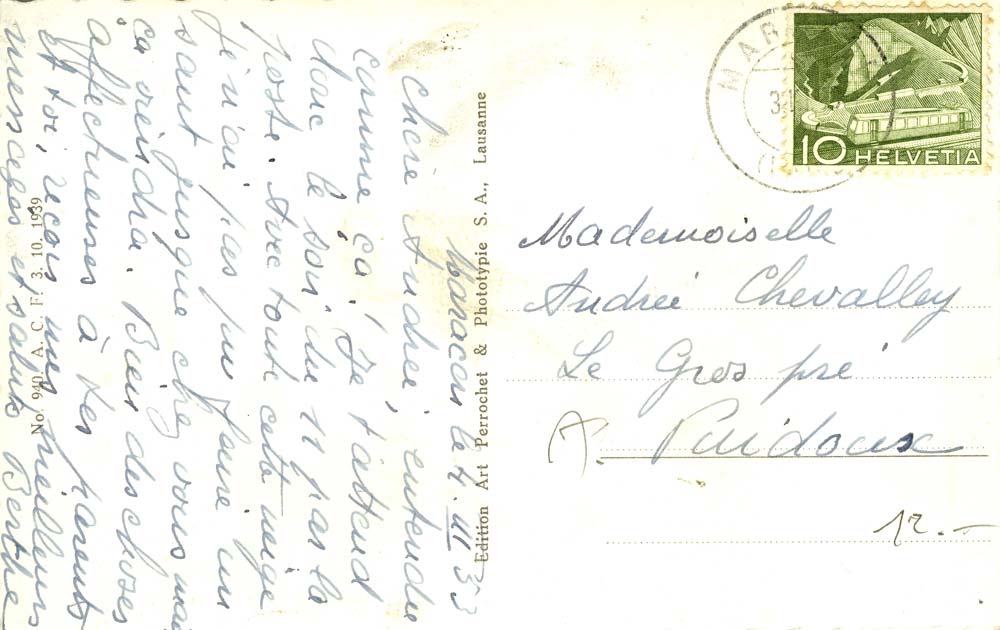 Maracon le 4. II 53
Chère Andrée, entendu
comme ça. Je t'attend
donc le soir du 11 pas la
poste. Avec toute cette neige
je n'ai pas pu faire un
saut jusque chez vous mais
ça viendra. Bien des choses
affectueuses à tes parents
et toi, reçois mes meilleurs
messages et saluts Berthe
No. 940 A. C. F. 3. 10. 1939
Edition Art Perrochet & Phototypie S. A., Lausanne
MAR
10 HELVETIA
Mademoiselle
Andrée Chevalley
Le Gros pré
Puidoux
12.-